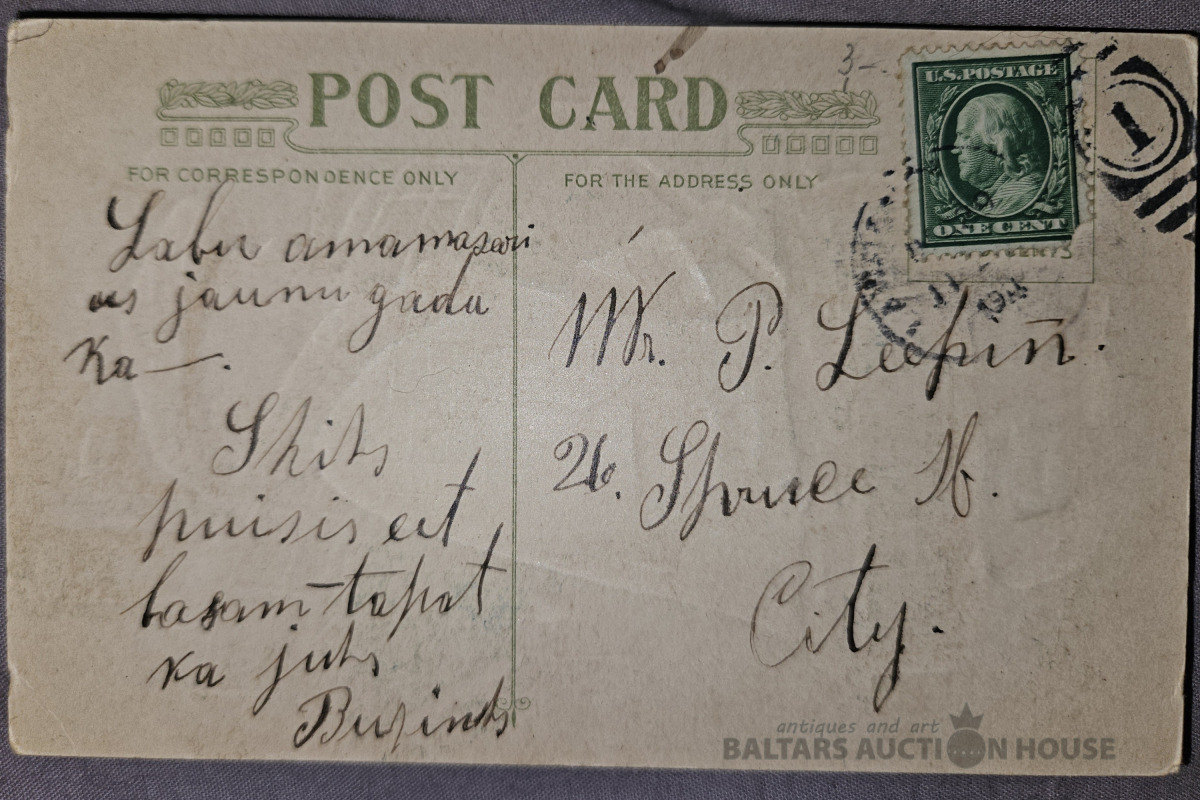 POST CARD
FOR CORRESPONDENCE ONLY
FOR THE ADDRESS ONLY
3-
U.S. POSTAGE
ONE CENT
1
Labu
us jaunu gadu
Ka —.
Shits
puisis eet
basam tapat
ka juhs
Mr. P. Leepiń.
26. Spruce St.
City.
antiques and art
BALTARS AUCTION HOUSE